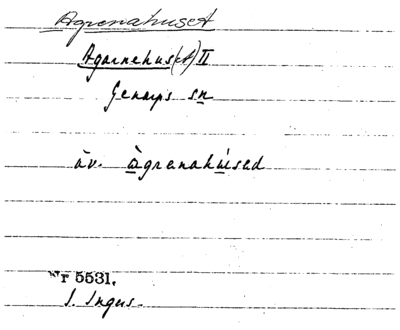 Agrenahuset
Agarnehus(et) II
Genarps sn
äv. àgrenahúsed
Nr 5531.
S. Ingers.